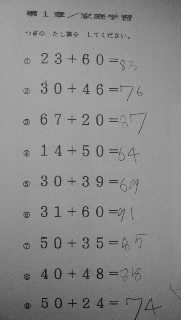 第1章/家庭学習
つぎの たし算を してください。
① 23+60=83
② 30+46=76
③ 67+20=87
④ 14+50=64
⑤ 30+39=69
⑥ 31+60=91
⑦ 50+35=85
⑧ 40+48=88
⑨ 50+24=74